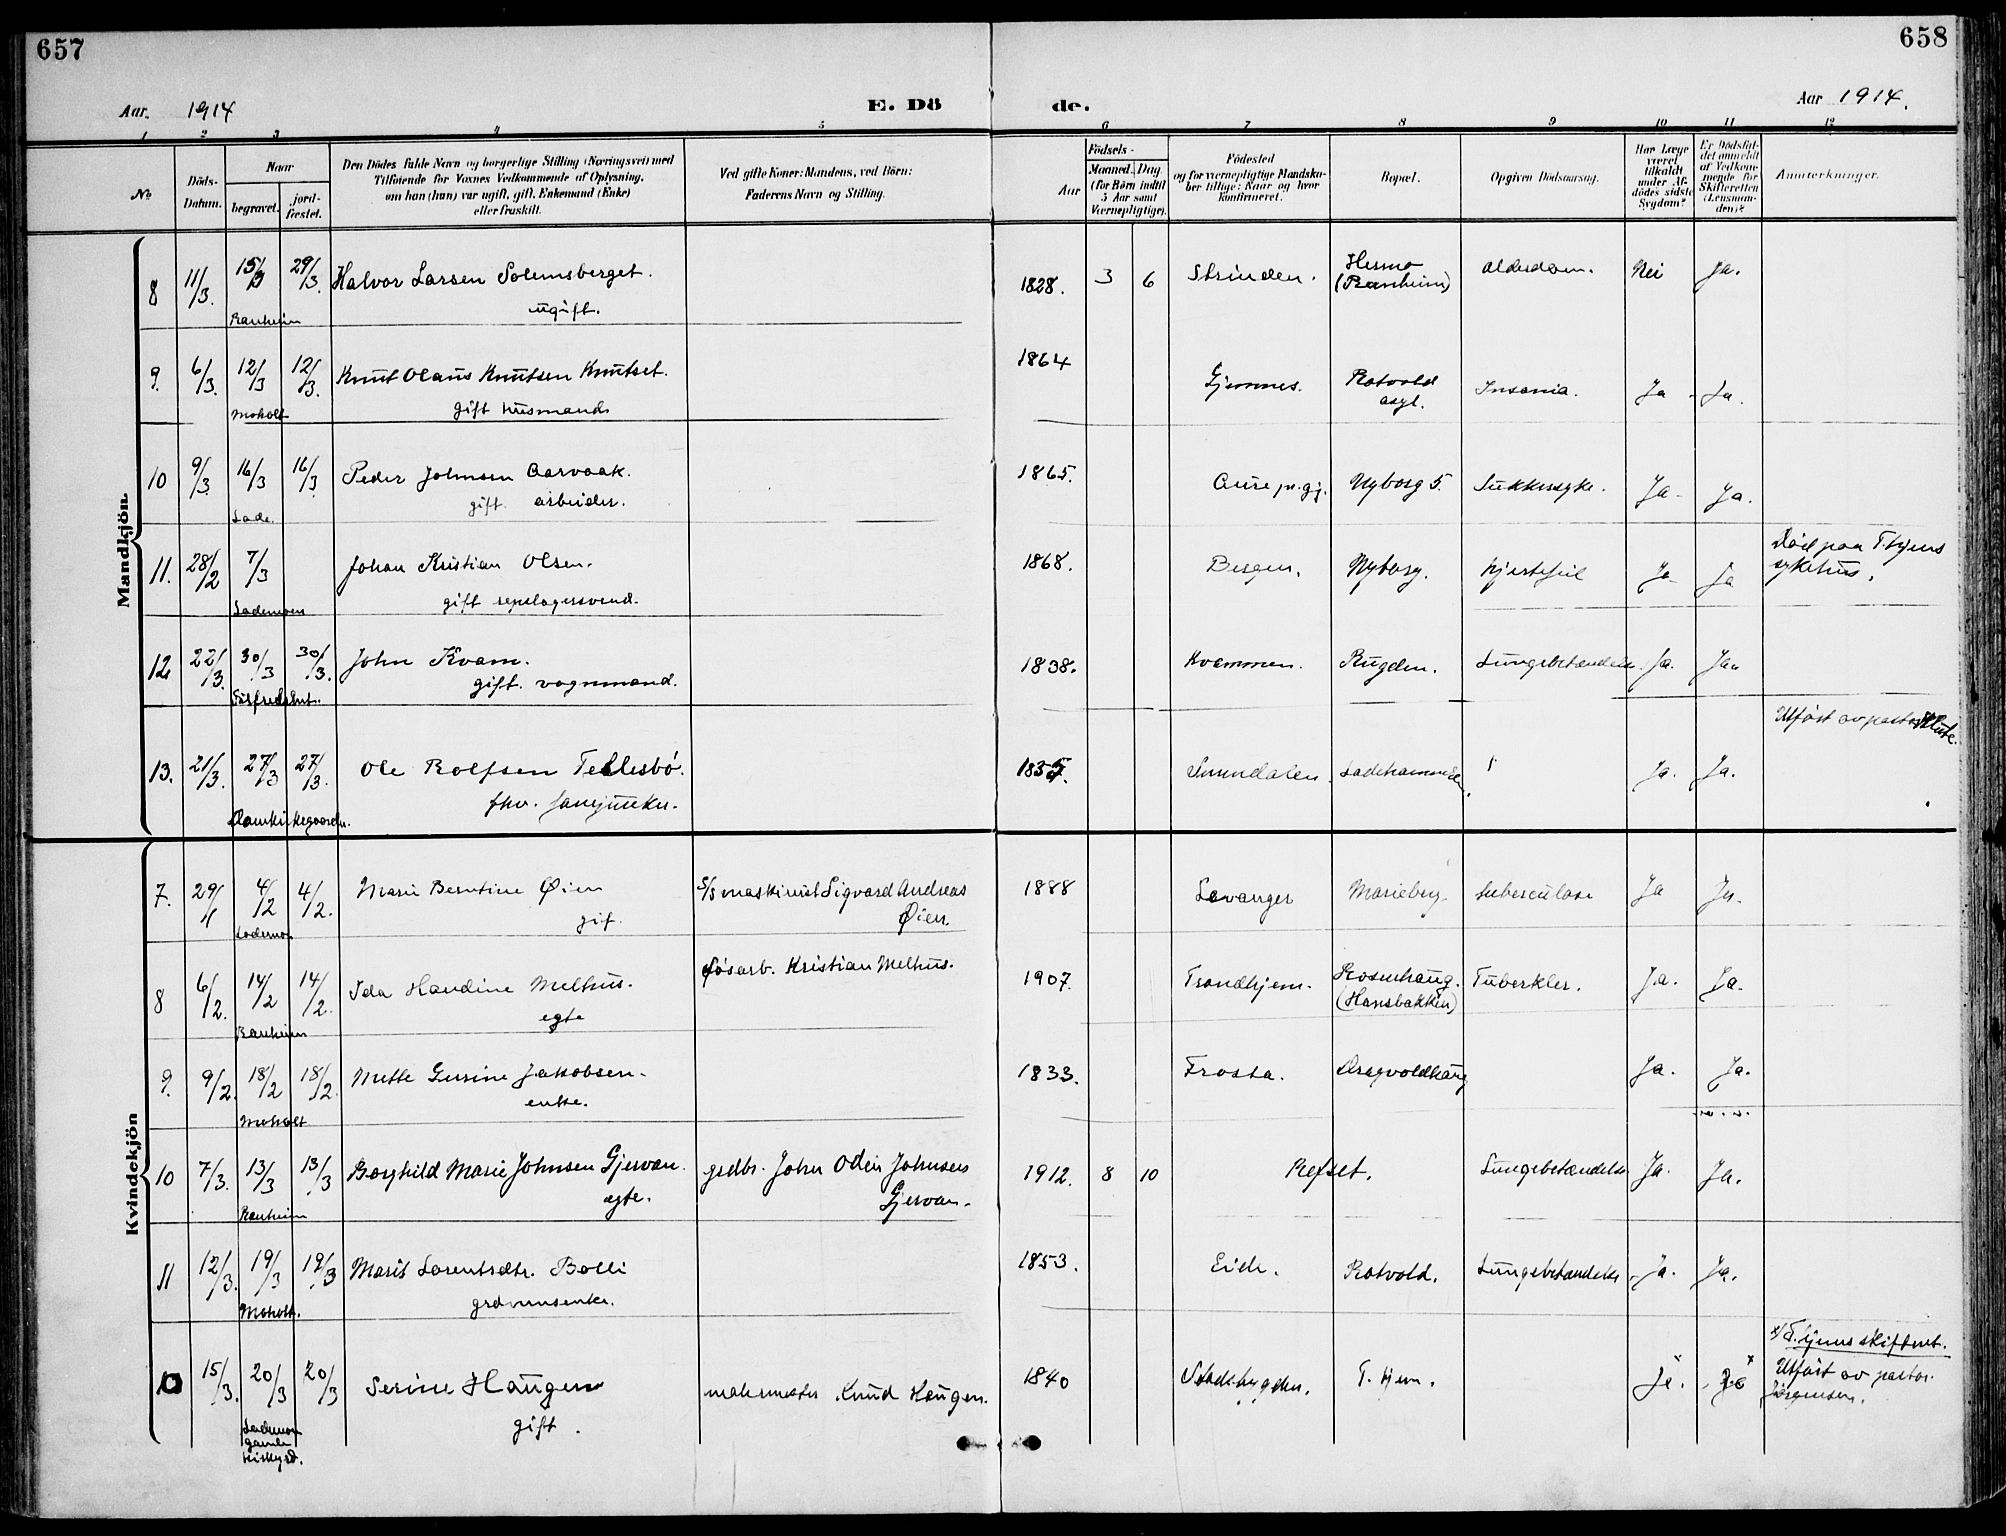 657
658
Aar. 1914
E. Dö de.
Aar 1914.
1 2 3 4 5 6 7 8 9 10 11 12
No.
Döds-Datum.
Naar
begravet.
jord-fæstet.
Den Dödes fulde Navn og borgerlige Stilling (Næringsvei) med
Tilföiende for Voxnes Vedkommende af Oplysning,
om han (hun) var ugift, gift, Enkemand (Enke)
eller fraskilt.
Ved gifte Koner: Mandens, ved Börn:
Faderens Navn og Stilling.
Födsels-
Aar
Maaned. Dag.
(for Börn indtil
5 Aar samt
Værnepligtige).
Födested
og for værnepligtige Mandska-
ber tillige: Naar og hvor
konfirmeret.
Bopæl.
Opgiven Dödsaarsag.
Har Læge
været
tilkaldt
under Af-
dödes sidste
Sygdom?
Er Dödsfal-
det anmeldt
af Vedkom-
mende for
Skifteretten
(Lensman-
den)?
Anmærkninger.
Mandkjön.
8 11/3. 15/3 29/3. Halvor Larsen Solemsberget. 1828. 3 6 Strinden. Hesmo Alderdom. Nei Ja.
Ranheim ugift. (Ranheim)
9. 6/3. 12/3 12/3. Knut Olaus Knutsen Knutset. 1864 Gjemnes. Rotvold Insania. Ja - Ja.
Moholt gift husmand asyl.
10 9/3. 16/3 16/3. Peder Johnsen Aarvaak. 1865. Aure pr.gj. Nyborg 5. Sukkersyke. Ja - Ja.
Lade. gift. arbeider.
11. 28/2 7/3 Johan Kristian Olsen. 1868. Bergen. Nyborg. hjertefeil Ja - Ja Död paa T.hjems
Lademoen gift repslagersvend. sykehus.
12 22/3. 30/3 30/3. John Kvam. 1838. Kvammen. Rugden. Lungebetændelse. Ja. Ja.
gift. vognmand.
13. 21/3. 27/3 27/3. Ole Rolfsen Tellesbö. Surendalen. Ladehammeren. Ja. Ja. Utfört av pastor Klute.
Domkirkegaarden. fhv.
Kvindekjön
7. 29/1 4/2 4/2. Marie Berntine Øien S/S maskinist Sigvard Andreas 1888 Levanger Marieborg. tuberculose Ja Ja.
Lademo. gif. Øien.
8 6/2. 14/2 14/2. Ida Haudine Melhus. Løsarb. Kristian Melhus. 1907. Trondhjem. Rosenhaug. Tuberkler. Ja. Ja.
Ranheim egte (Hansbakken)
9. 9/2. 18/2 18/2. Mette Gurine Jakobsen. 1833. Frosta. Dragvoldhaug Ja. Ja.
Moholt enke.
10 7/3. 13/3 13/3 Borghild Marie Johnsen Gjervan. grdbr. John Odin Johnsen 1912. 8 10 Refset. Lungebetændelse Ja. Ja.
Ranheim egte. Gjervan.
11 12/3. 19/3 19/3 Marit Lorentsdtr. Bolli 1853. Eide. Rotvold. Lungebetændelse Ja. Ja.
Moholt. grdmmsenke.
15/3. 20/3 20/3 Serine Haugen malermester Knud Haugen. 1840 Stadsbygden. T.hjem. Ja. Ja x/ T.hjems skifteret.
Lademoen gift Utfört av pastor
gamle Jörgensen.
kirkegd.